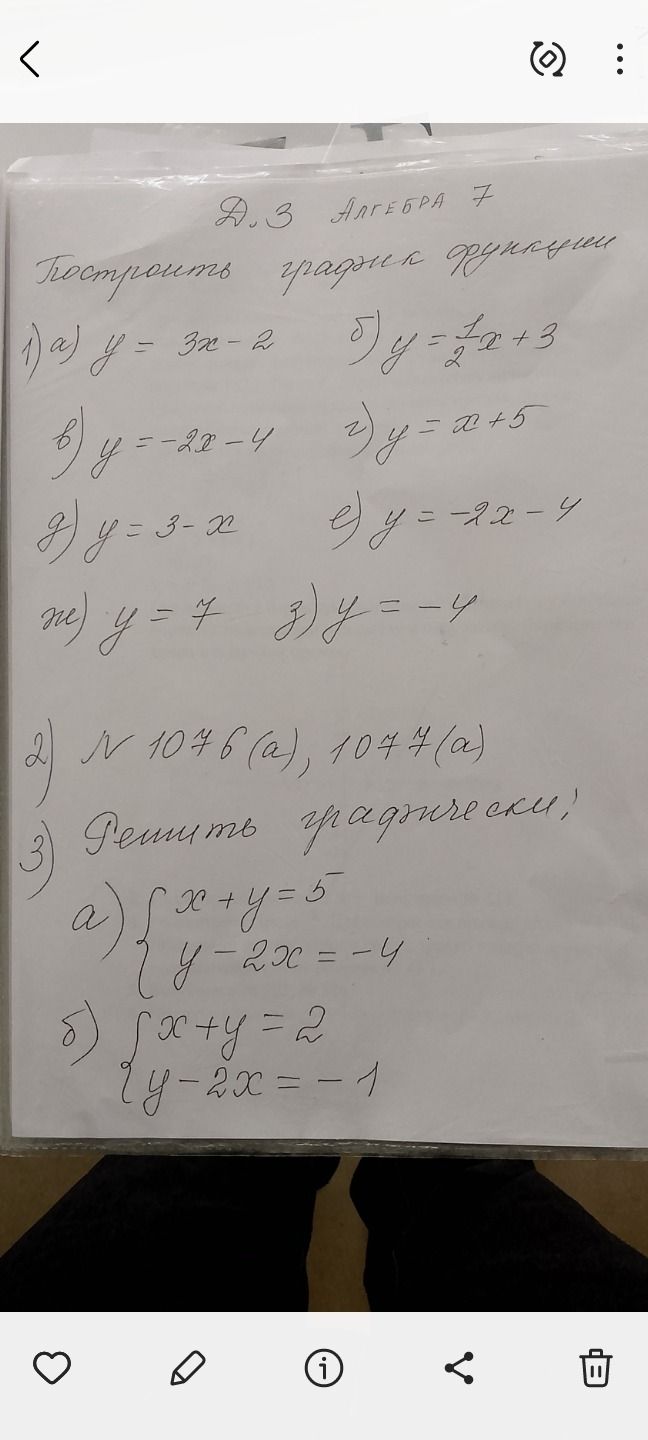 Д.З Алгебра 7
Построить график функции
1) а) y = 3x - 2 б) y = 1/2 x + 3
в) y = -2x - 4 г) y = x + 5
д) y = 3 - x е) y = -2x - 4
ж) y = 7 з) y = -4
2) N 1076 (а), 1077 (а)
3) Решить графически!
а) { x + y = 5
y - 2x = -4
б) { x + y = 2
y - 2x = -1